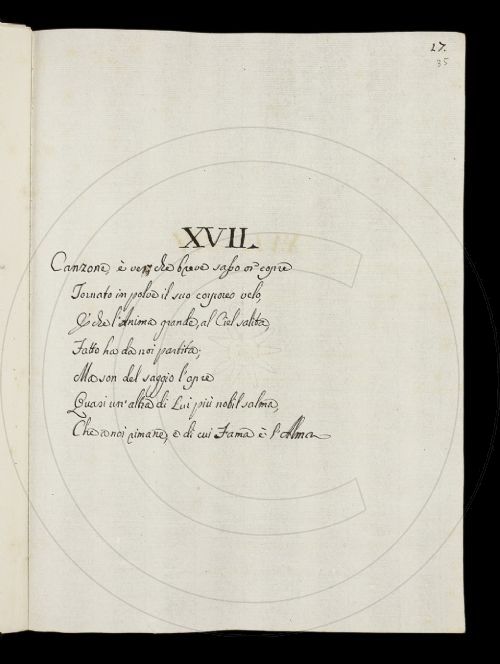 27.
35
XVII.
Canzone, è ver, che breve sasso or copre
Tornato in polve il suo corporeo velo,
E che l'Anima grande, al Ciel salita,
Fatto ha da noi partita;
Ma son del saggio l'opre
Quasi un'altra di Lui più nobil salma,
Che a noi rimane, e di cui Fama è l'Alma